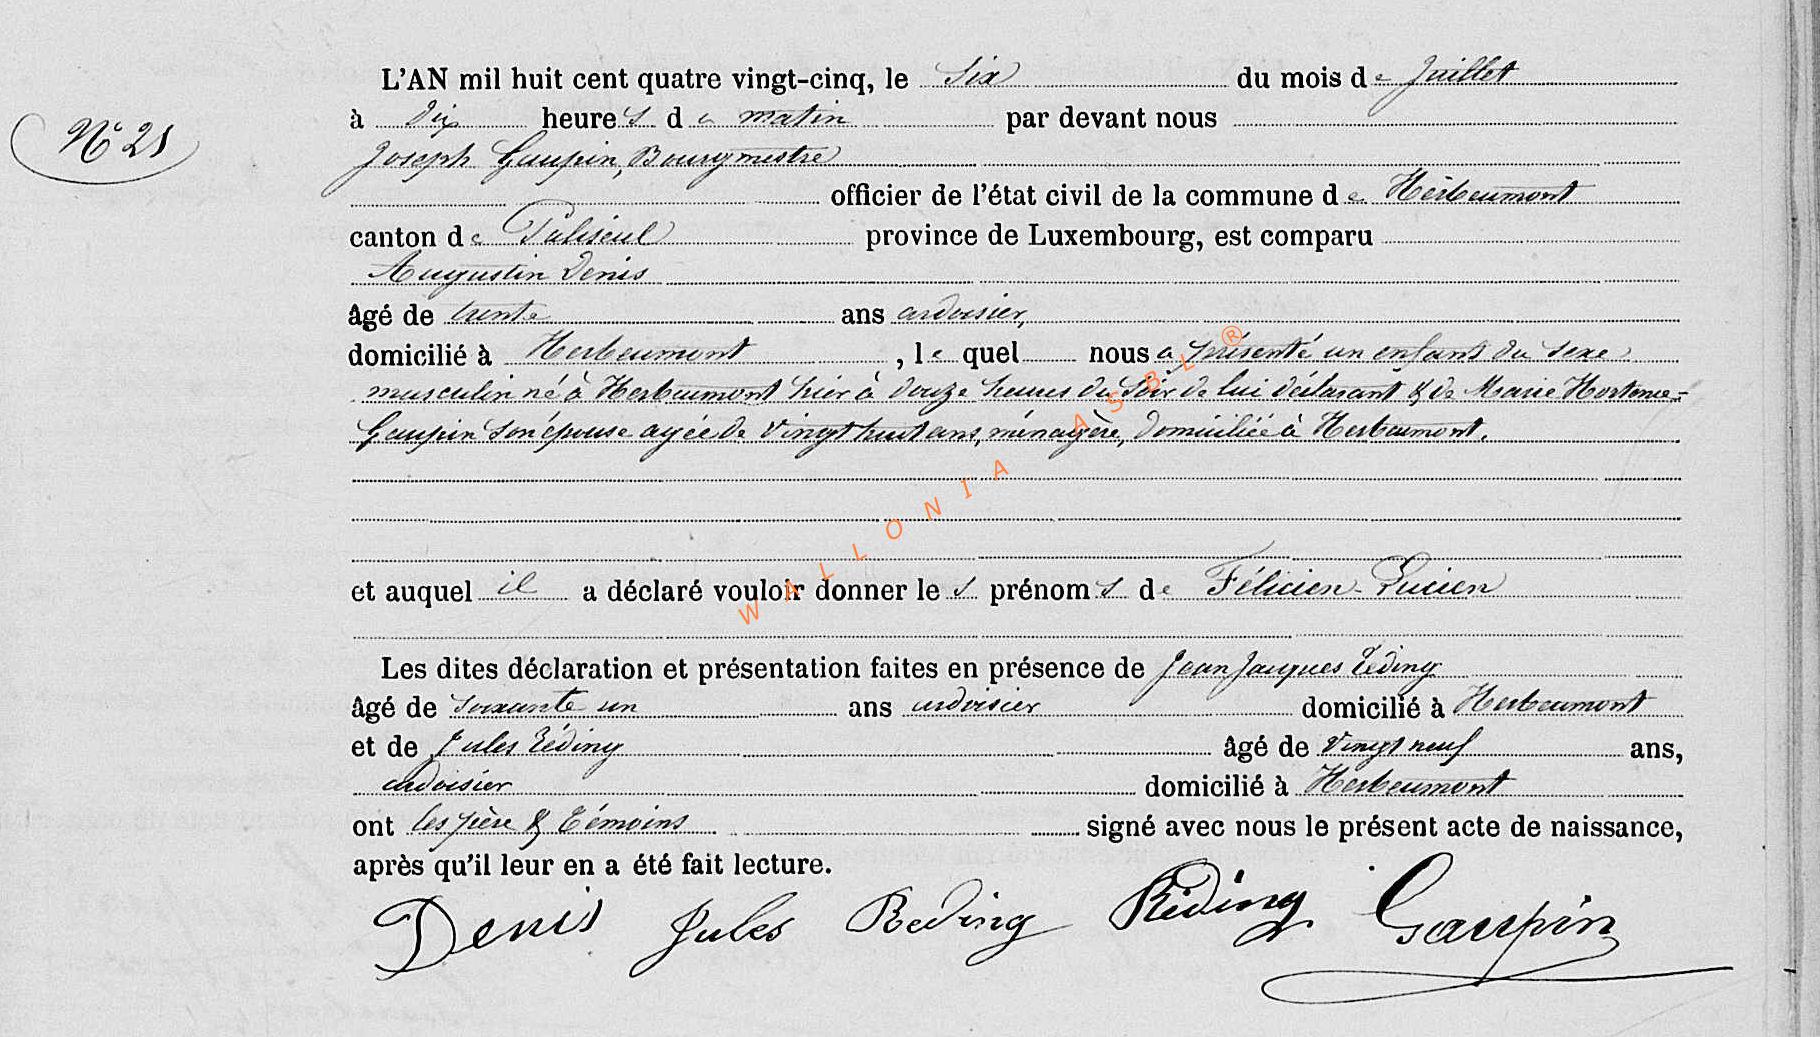 L'AN mil huit cent quatre vingt-cinq, le six du mois de Juillet
N° 21
à dix heures de matin par devant nous
Joseph Gaupin, Bourgmestre
officier de l'état civil de la commune de Herbeumont
canton de Paliseul province de Luxembourg, est comparu
Augustin Denis
âgé de trente ans ardoisier,
domicilié à Herbeumont, lequel nous a présenté un enfant du sexe
masculin né à Herbeumont hier à douze heures du soir de lui déclarant & de Marie Hortense
Gaupin son épouse agée de vingt huit ans, ménagère, domiciliée à Herbeumont.
et auquel il a déclaré vouloir donner les prénoms de Félicien-Lucien
Les dites déclaration et présentation faites en présence de Jean Jacques Réding
âgé de soixante un ans ardoisier domicilié à Herbeumont
et de Jules Réding âgé de vingt neuf ans,
ardoisier domicilié à Herbeumont
ont les père & témoins signé avec nous le présent acte de naissance,
après qu'il leur en a été fait lecture.
Denis Jules Reding Réding Gaupin
WALLONIA ASBL ®